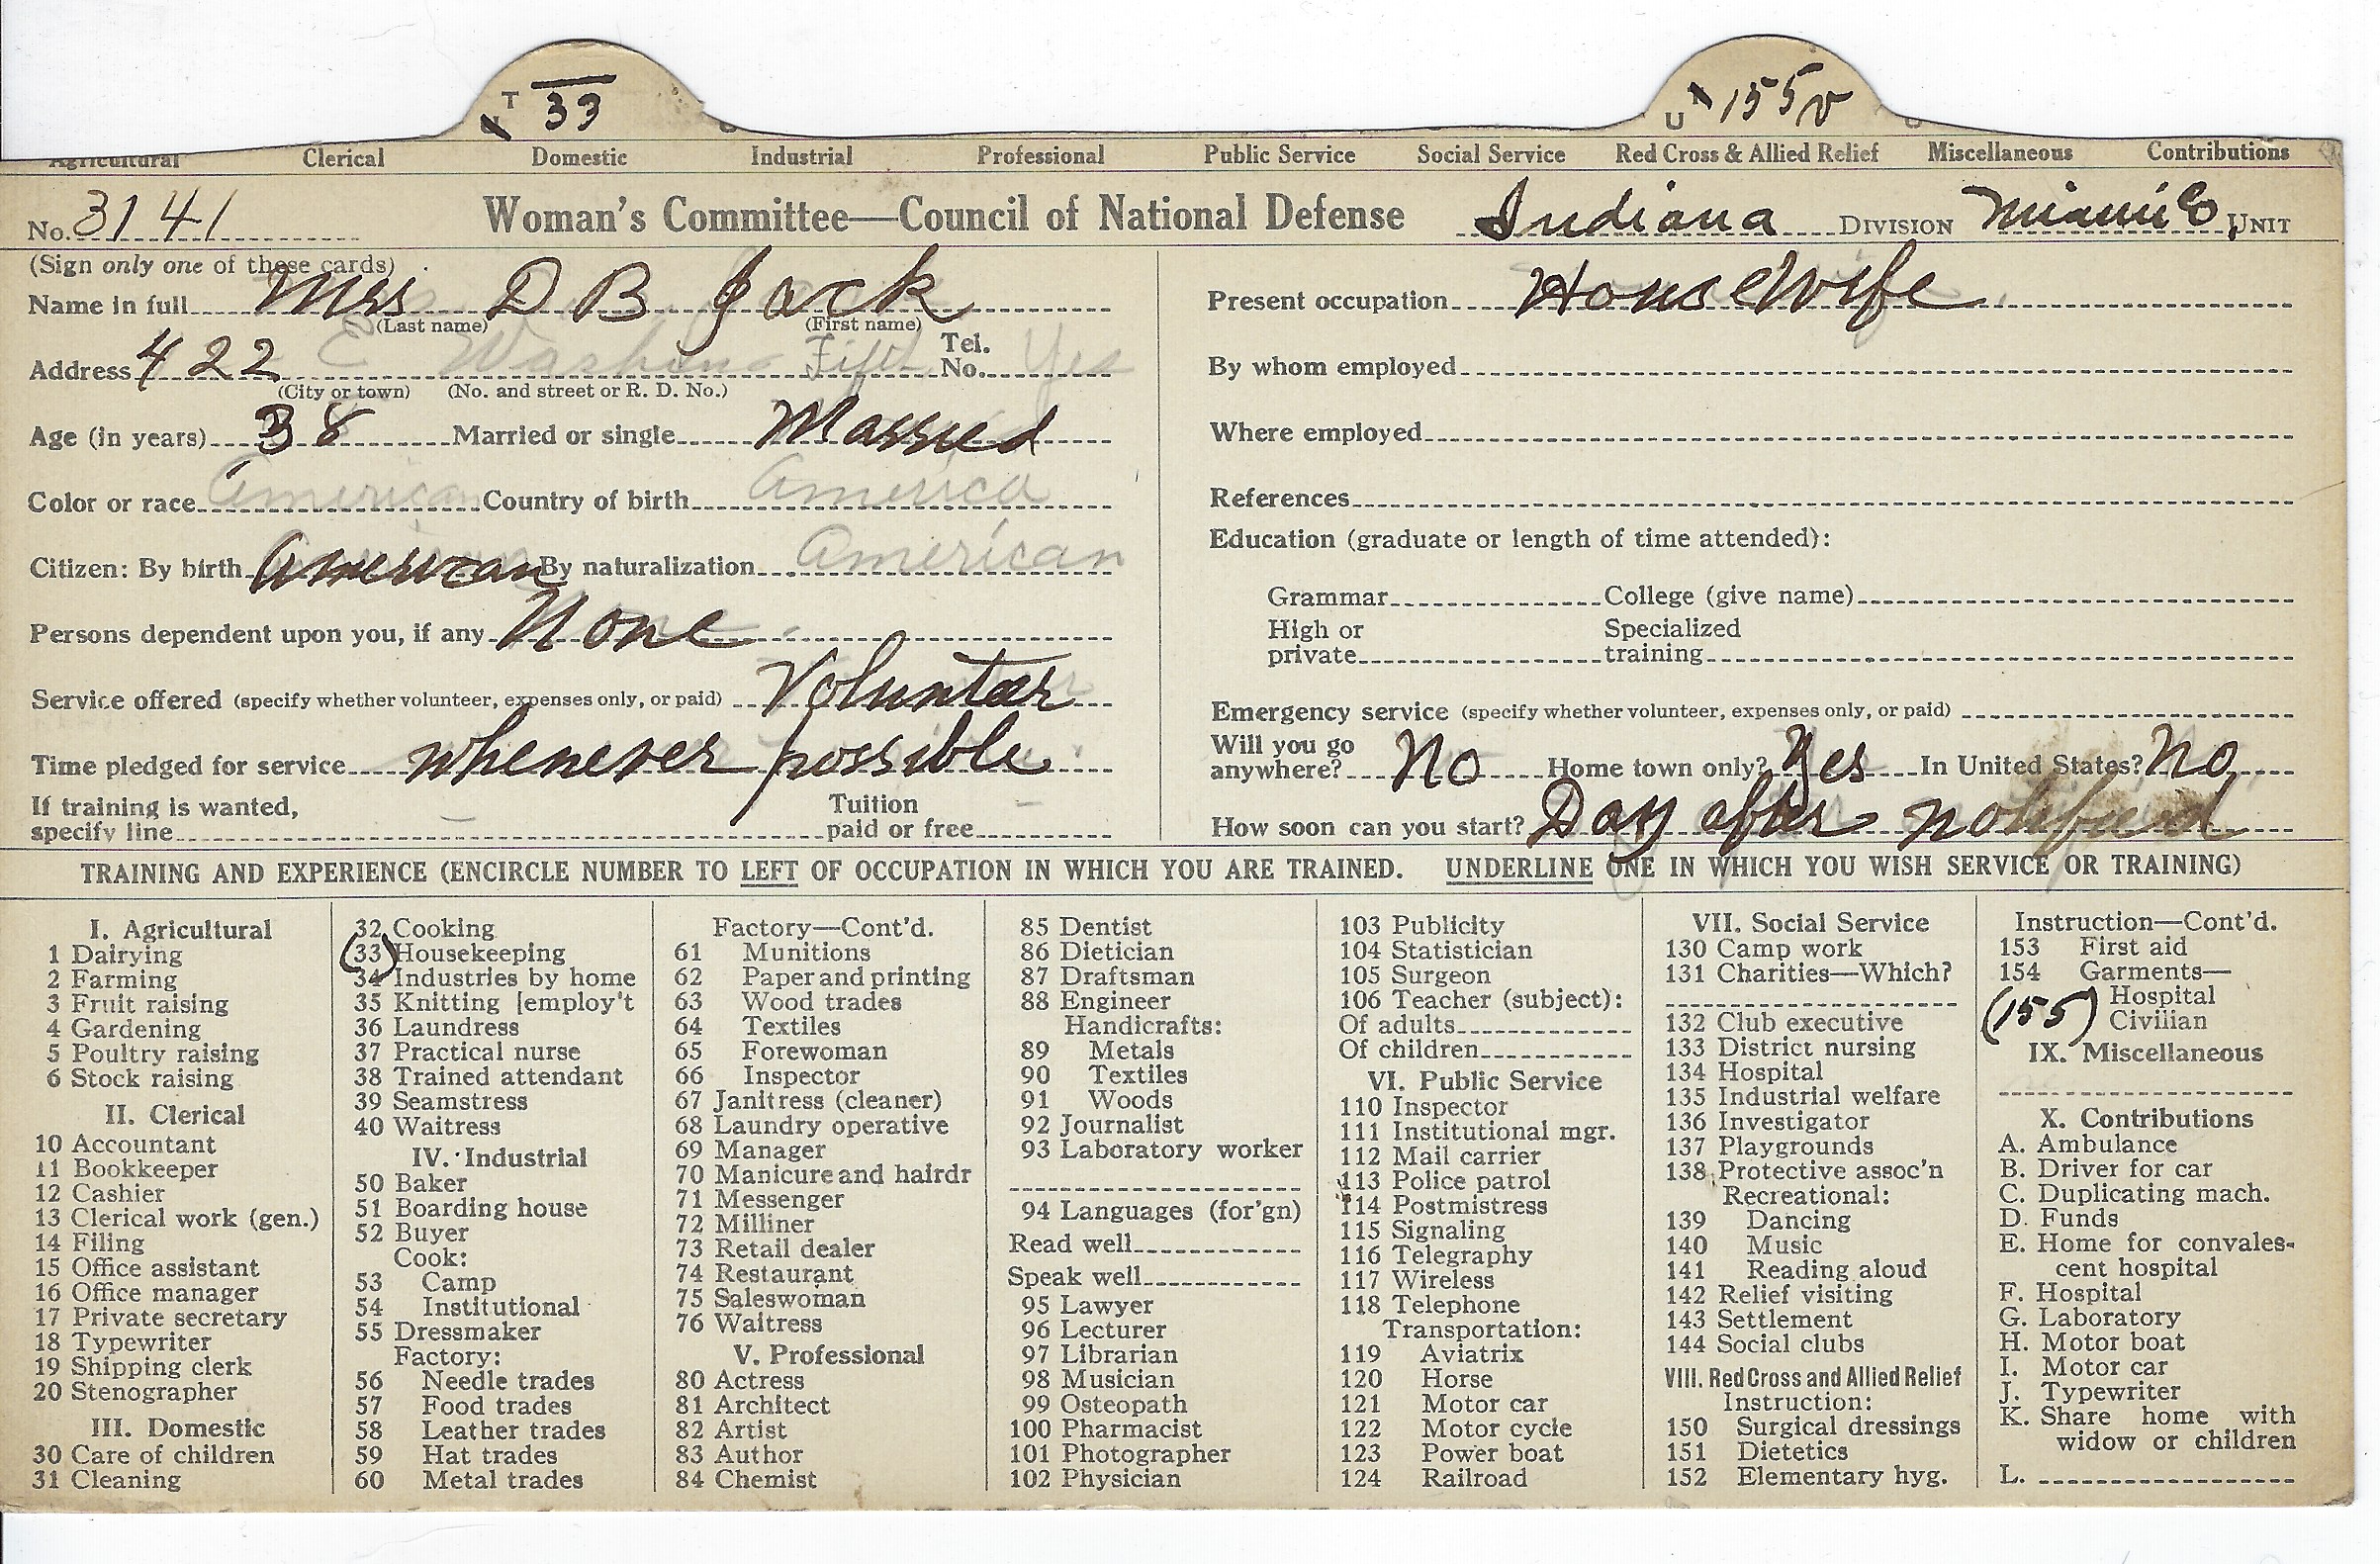 T 33
U 155 v
Agricultural Clerical Domestic Industrial Professional Public Service Social Service Red Cross & Allied Relief Miscellaneous Contributions
No. 3141 Woman's Committee—Council of National Defense Indiana DIVISION Miami Co, UNIT
(Sign only one of these cards)
Name in full Mrs D B Jack
(Last name) (First name)
Address 422 E Washing Fifth Tel. No. Yes
(City or town) (No. and street or R. D. No.)
Age (in years) 38 Married or single Married
Color or race American Country of birth America
Citizen: By birth American By naturalization American
Persons dependent upon you, if any None
Service offered (specify whether volunteer, expenses only, or paid) Volunter
Time pledged for service whenever possible
If training is wanted, specify line Tuition paid or free
Present occupation HouseWife
By whom employed
Where employed
References
Education (graduate or length of time attended):
Grammar College (give name)
High or private Specialized training
Emergency service (specify whether volunteer, expenses only, or paid)
Will you go anywhere? No Home town only? Yes In United States? No
How soon can you start? Day after notified
TRAINING AND EXPERIENCE (ENCIRCLE NUMBER TO LEFT OF OCCUPATION IN WHICH YOU ARE TRAINED. UNDERLINE ONE IN WHICH YOU WISH SERVICE OR TRAINING)
I. Agricultural
1 Dairying
2 Farming
3 Fruit raising
4 Gardening
5 Poultry raising
6 Stock raising
II. Clerical
10 Accountant
11 Bookkeeper
12 Cashier
13 Clerical work (gen.)
14 Filing
15 Office assistant
16 Office manager
17 Private secretary
18 Typewriter
19 Shipping clerk
20 Stenographer
III. Domestic
30 Care of children
31 Cleaning
32 Cooking
(33) Housekeeping
34 Industries by home
35 Knitting [employ't
36 Laundress
37 Practical nurse
38 Trained attendant
39 Seamstress
40 Waitress
IV. Industrial
50 Baker
51 Boarding house
52 Buyer
Cook:
53 Camp
54 Institutional
55 Dressmaker
Factory:
56 Needle trades
57 Food trades
58 Leather trades
59 Hat trades
60 Metal trades
Factory—Cont'd.
61 Munitions
62 Paper and printing
63 Wood trades
64 Textiles
65 Forewoman
66 Inspector
67 Janitress (cleaner)
68 Laundry operative
69 Manager
70 Manicure and hairdr
71 Messenger
72 Milliner
73 Retail dealer
74 Restaurant
75 Saleswoman
76 Waitress
V. Professional
80 Actress
81 Architect
82 Artist
83 Author
84 Chemist
85 Dentist
86 Dietician
87 Draftsman
88 Engineer
Handicrafts:
89 Metals
90 Textiles
91 Woods
92 Journalist
93 Laboratory worker
94 Languages (for'gn)
Read well
Speak well
95 Lawyer
96 Lecturer
97 Librarian
98 Musician
99 Osteopath
100 Pharmacist
101 Photographer
102 Physician
103 Publicity
104 Statistician
105 Surgeon
106 Teacher (subject):
Of adults
Of children
VI. Public Service
110 Inspector
111 Institutional mgr.
112 Mail carrier
113 Police patrol
114 Postmistress
115 Signaling
116 Telegraphy
117 Wireless
118 Telephone
Transportation:
119 Aviatrix
120 Horse
121 Motor car
122 Motor cycle
123 Power boat
124 Railroad
VII. Social Service
130 Camp work
131 Charities—Which?
132 Club executive
133 District nursing
134 Hospital
135 Industrial welfare
136 Investigator
137 Playgrounds
138 Protective assoc'n
Recreational:
139 Dancing
140 Music
141 Reading aloud
142 Relief visiting
143 Settlement
144 Social clubs
VIII. Red Cross and Allied Relief
Instruction:
150 Surgical dressings
151 Dietetics
152 Elementary hyg.
Instruction—Cont'd.
153 First aid
154 Garments—
Hospital
(155) Civilian
IX. Miscellaneous
X. Contributions
A. Ambulance
B. Driver for car
C. Duplicating mach.
D. Funds
E. Home for convales-
cent hospital
F. Hospital
G. Laboratory
H. Motor boat
I. Motor car
J. Typewriter
K. Share home with
widow or children
L.